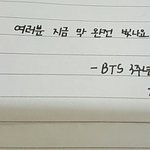 여러분 지금 막 완전 빛나요
- BTS 3주년